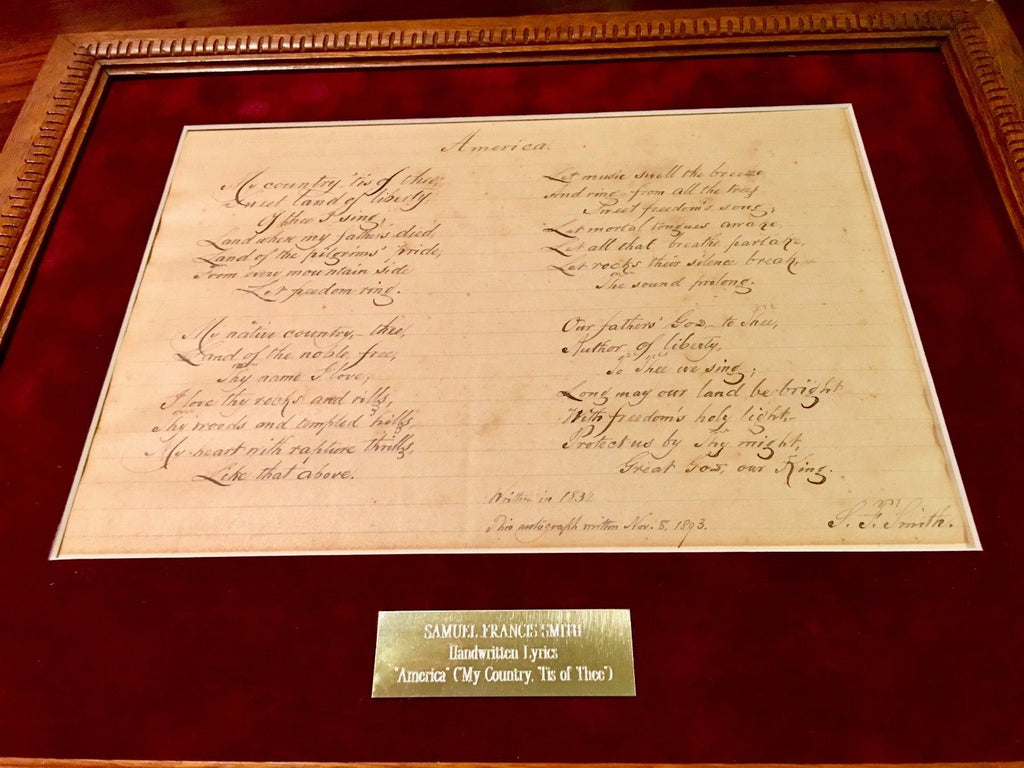 America.
My country, 'tis of thee,
Sweet land of liberty
Of thee I sing;
Land where my fathers died
Land of the pilgrims' pride,
From every mountain side
Let freedom ring.
My native country, – thee,
Land of the noble, free,
Thy name I love;
I love thy rocks and rills,
Thy woods and templed hills,
My heart with rapture thrills,
Like that above.
Let music swell the breeze
And ring from all the trees
Sweet freedom's song;
Let mortal tongues awake,
Let all that breathe partake,
Let rocks their silence break, –
The sound prolong.
Our fathers' God, – to Thee,
Author of liberty,
To Thee we sing;
Long may our land be bright
With freedom's holy light, –
Protect us by Thy might,
Great God, our King.
Written in 1832
This autograph written Nov. 8, 1893.
S. F. Smith.
SAMUEL FRANCIS SMITH
Handwritten Lyrics
"America" ("My Country, 'Tis of Thee")